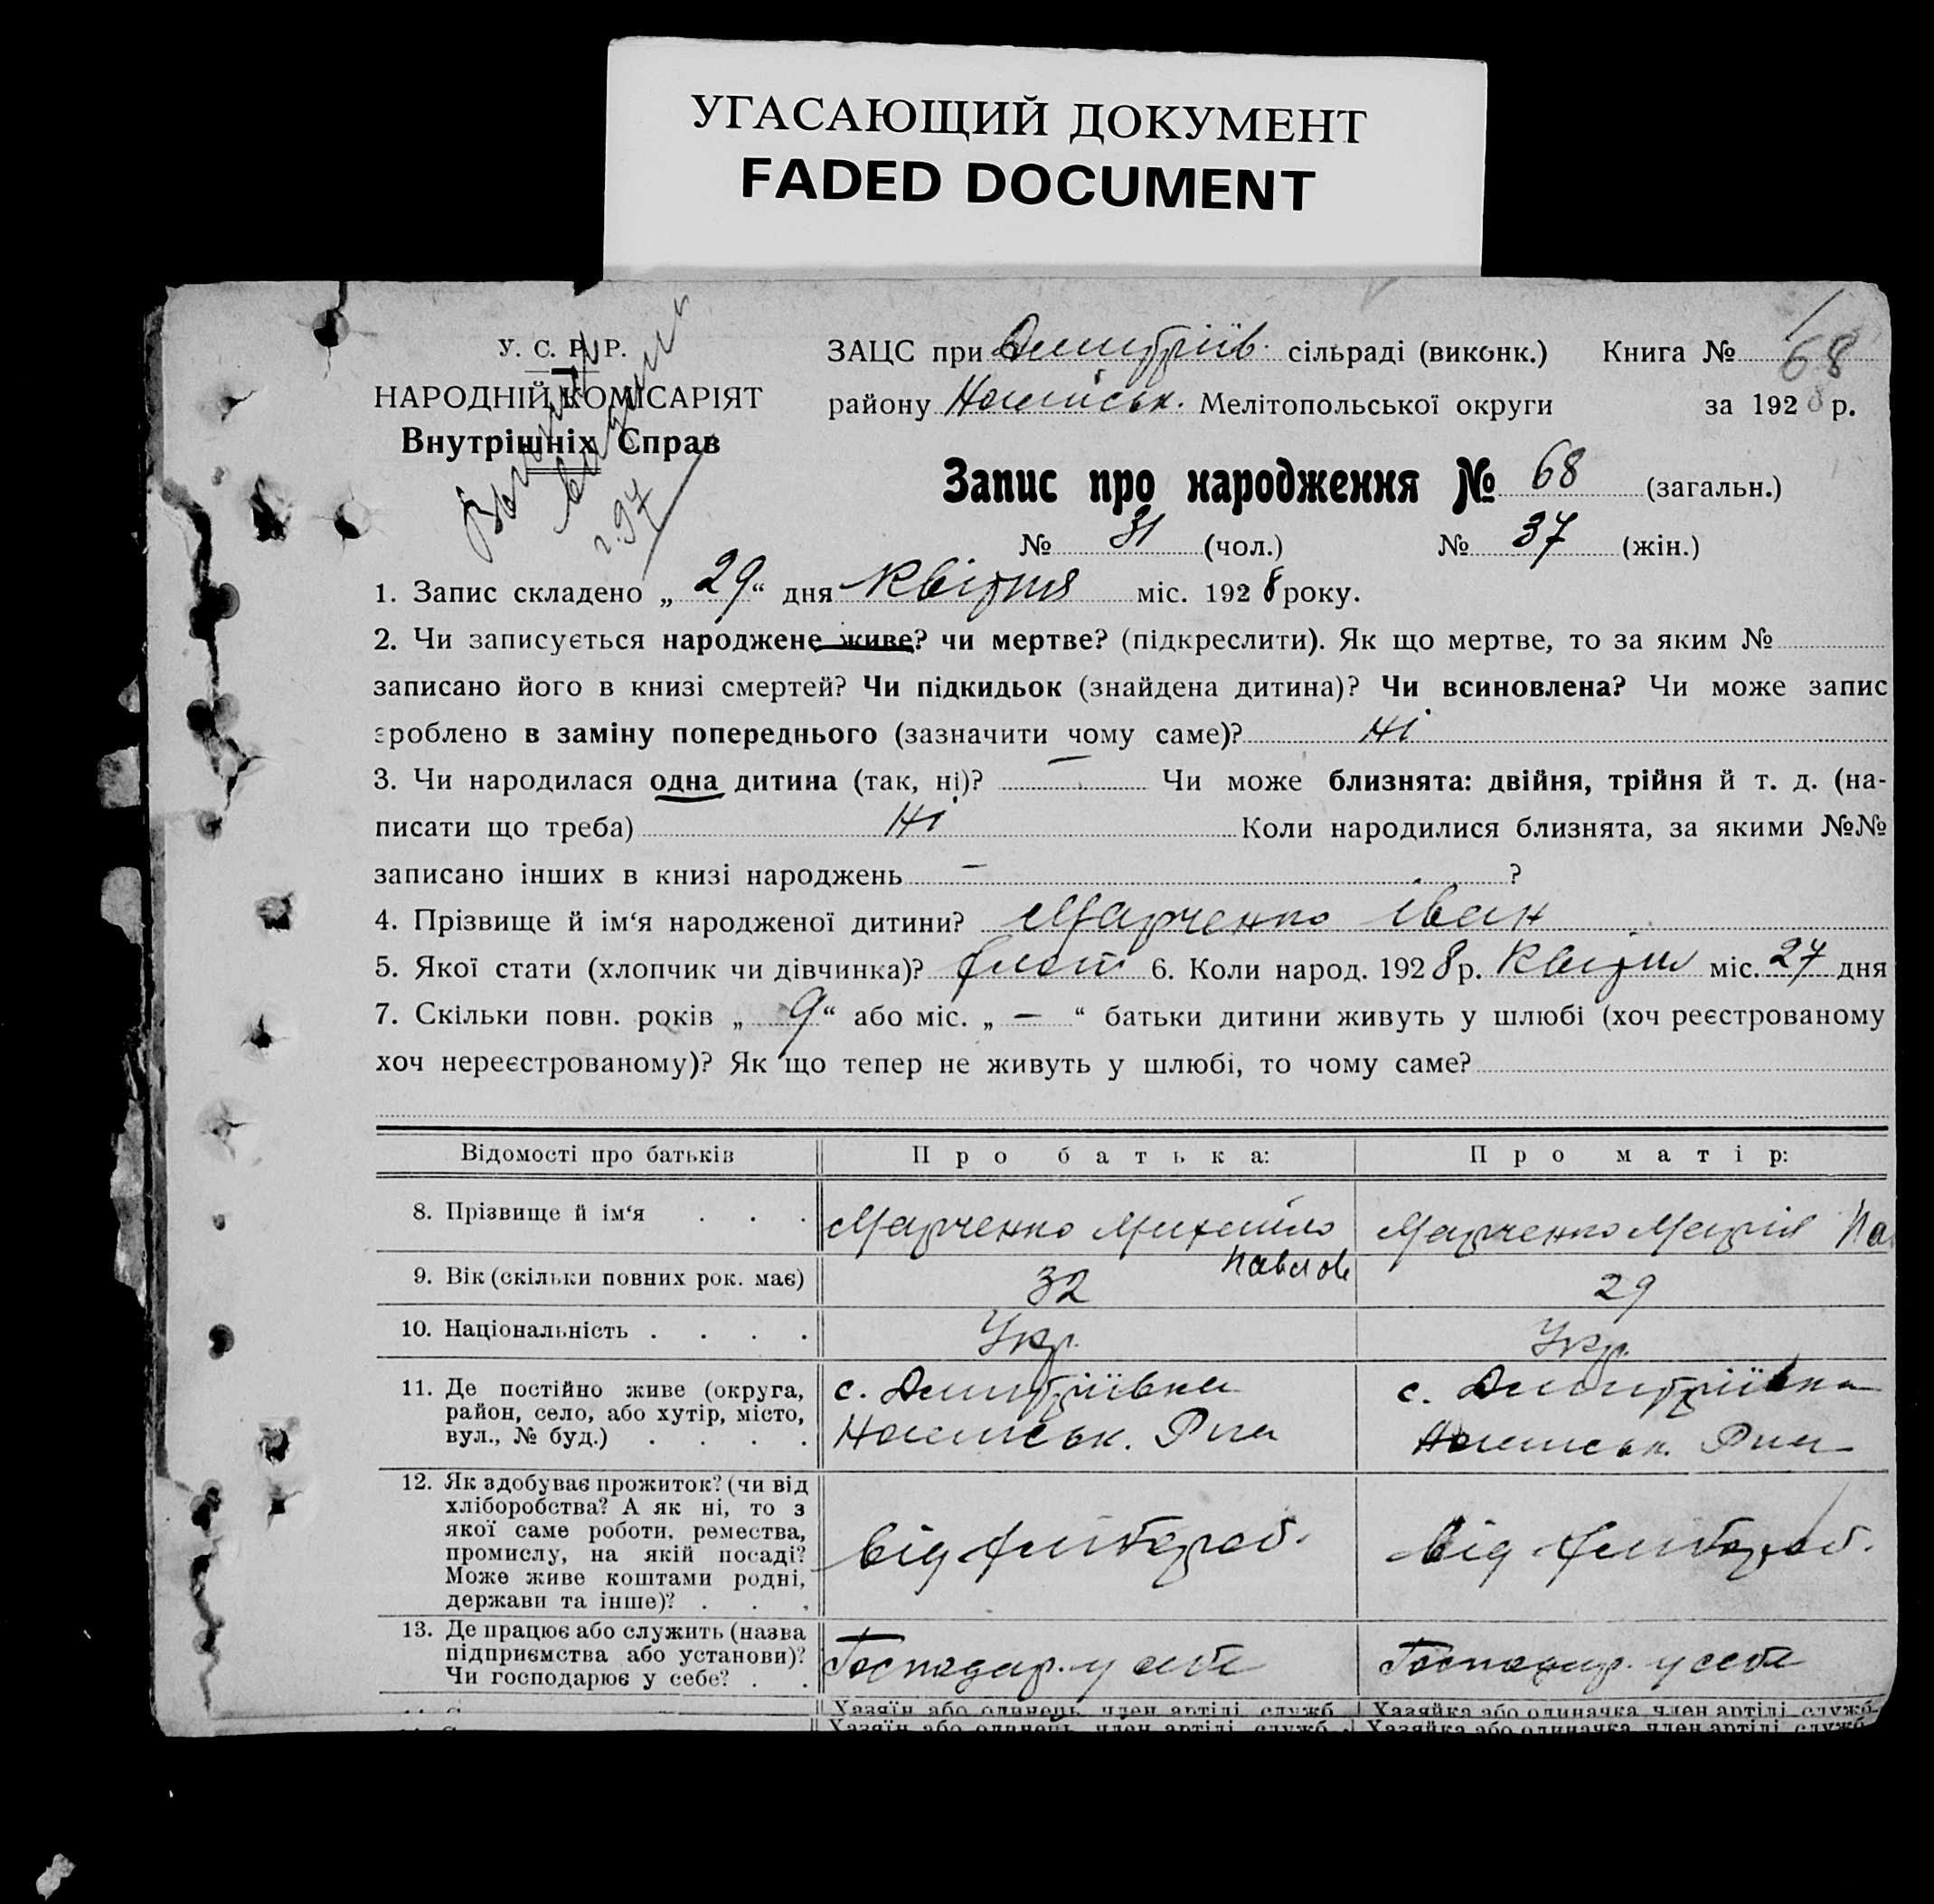 УГАСАЮЩИЙ ДОКУМЕНТ
FADED DOCUMENT
У. С. Р. Р.
НАРОДНІЙ КОМІСАРІЯТ
Внутрішніх Справ
ЗАЦС при Дмитріїв. сільраді (виконк.) Книга № 68
району Мелітопольської округи за 1928 р.
Запис про народження № 68 (загальн.)
№ 31 (чол.) № 37 (жін.)
1. Запис складено „29“ дня квітня міс. 1928 року.
2. Чи записується народжене живе? чи мертве? (підкреслити). Як що мертве, то за яким №
записано його в книзі смертей? Чи підкидьок (знайдена дитина)? Чи всиновлена? Чи може запис
зроблено в заміну попереднього (зазначити чому саме)? Ні
3. Чи народилася одна дитина (так, ні)? — Чи може близнята: двійня, трійня й т. д. (на-
писати що треба) Ні Коли народилися близнята, за якими №№
записано інших в книзі народжень — ?
4. Прізвище й ім‘я народженої дитини? Марченко Іван
5. Якої стати (хлопчик чи дівчинка)? хлоп 6. Коли народ. 1928 р. квітня міс. 27 дня
7. Скільки повн. років „9“ або міс. „—“ батьки дитини живуть у шлюбі (хоч реєстрованому
хоч нереєстрованому)? Як що тепер не живуть у шлюбі, то чому саме?
Відомості про батьків Про батька: Про матір:
8. Прізвище й ім‘я . . . Марченко Михайло Павлов Марченко Марія Па
9. Вік (скільки повних рок. має) 32 29
10. Національність . . . . Укр. Укр.
11. Де постійно живе (округа, с. Дмитріївка с. Дмитріївка
район, село, або хутір, місто,
вул., № буд.) . . . .
12. Як здобуває прожиток? (чи від
хліборобства? А як ні, то з
якої саме роботи. ремества, від хлібороб. від хлібороб.
промислу, на якій посаді?
Може живе коштами родні,
держави та інше)? . . .
13. Де працює або служить (назва
підприємства або установи)? Господар. у себе Господар. у себе
Чи господарює у себе? . .
Хазяїн або одинець, член артілі, служб. Хазяйка або одиначка, член артілі, служб.
Хазяїн або одинець, член артілі, служб. Хазяйка або одиначка, член артілі, служб.